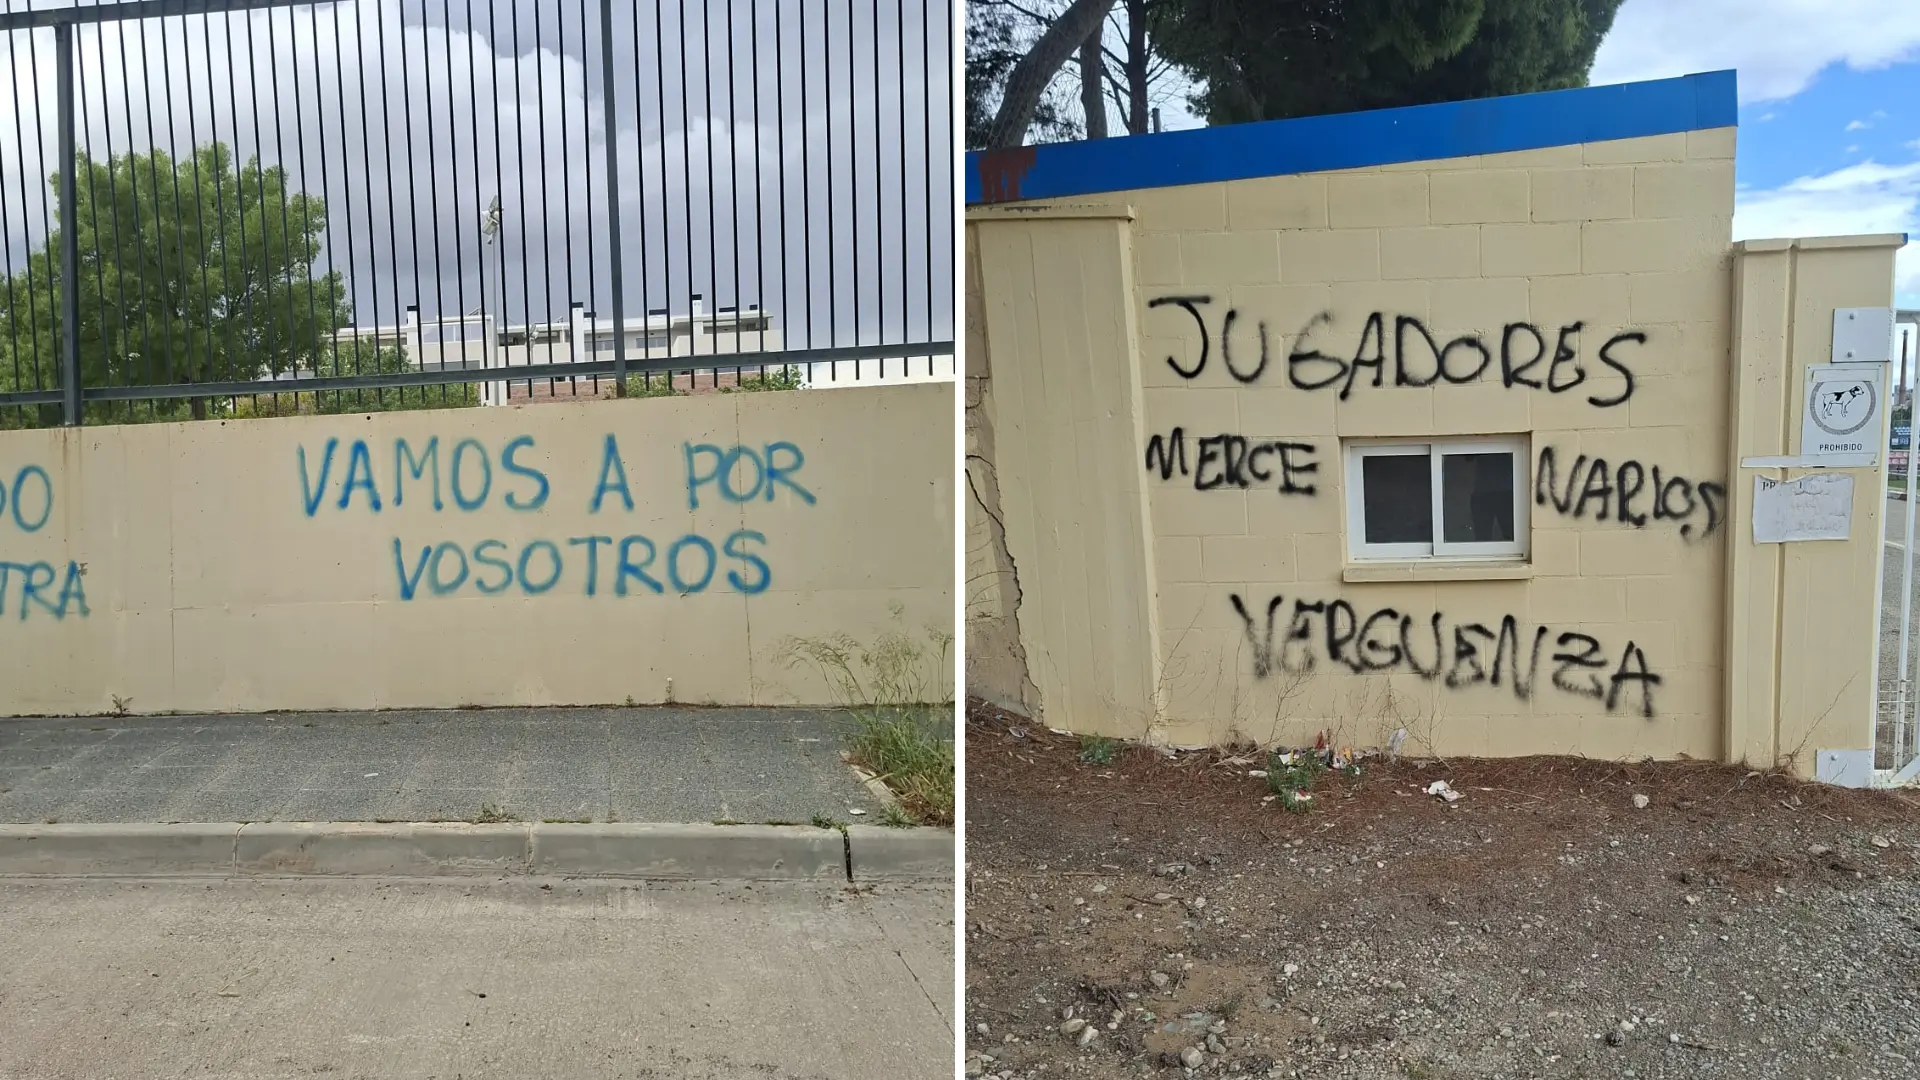 VAMOS A POR
VOSOTROS
TRA
JUGADORES
MERCE NARIOS
VERGUENZA
PROHIBIDO